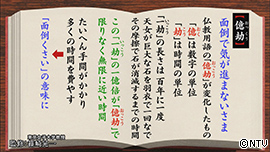 【億劫】
おっくう
面倒で気が進まないさま
仏教用語の「億劫」が変化したもの
おくこう
「億」は数字の単位
「劫」は時間の単位
「一劫」の長さは百年に一度
天女が巨大な石を羽衣で一回なで
その摩擦で石が消滅するまでの時間
この「一劫」の一億倍が「億劫」で
限りなく無限に近い時間
たいへん手間がかかり
多くの時間を費やす
「面倒くさい」の意味に
©NTV